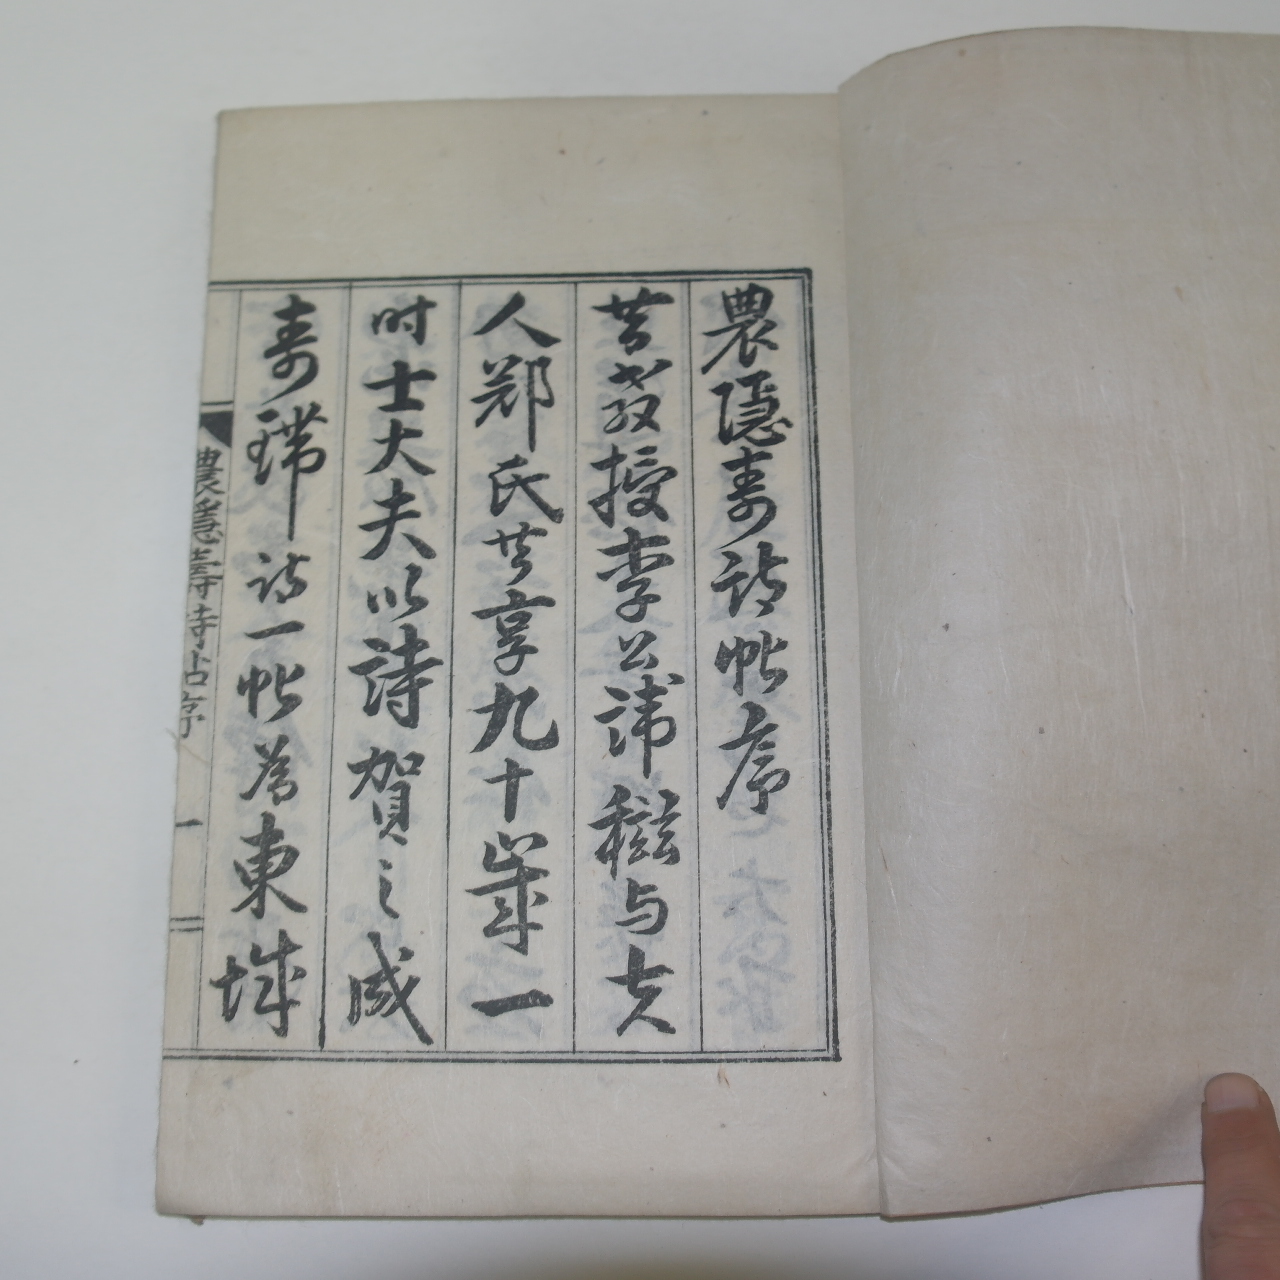 農隱壽詩帖序
昔敎授李公諱稵与夫
人鄭氏共享九十歲一
时士大夫以詩賀之成
壽瑋詩一帖為東城
農隱壽詩帖序
一